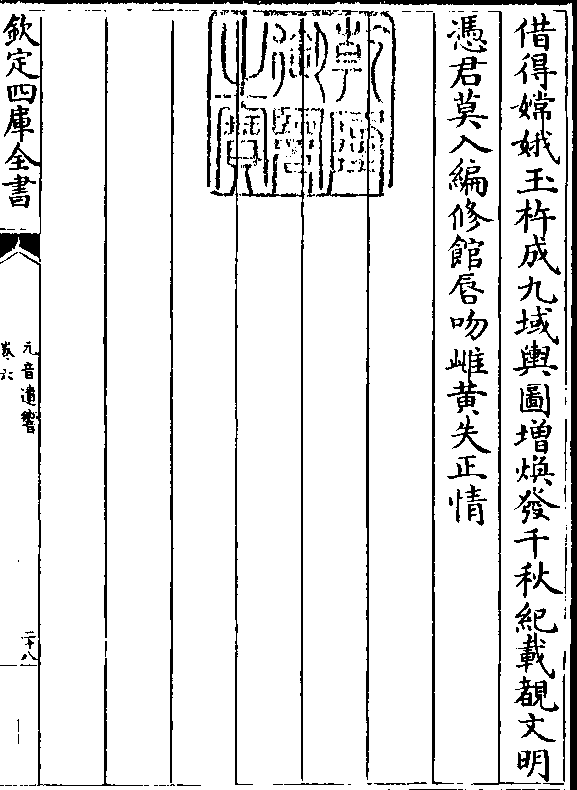 借得嫦娥玉杵成九域輿圖增煥發千秋紀載覩文明
憑君莫入編修館唇吻雌黄失正情
乾隆御覽之寶
欽定四庫全書
元音遺響
卷六
二十八